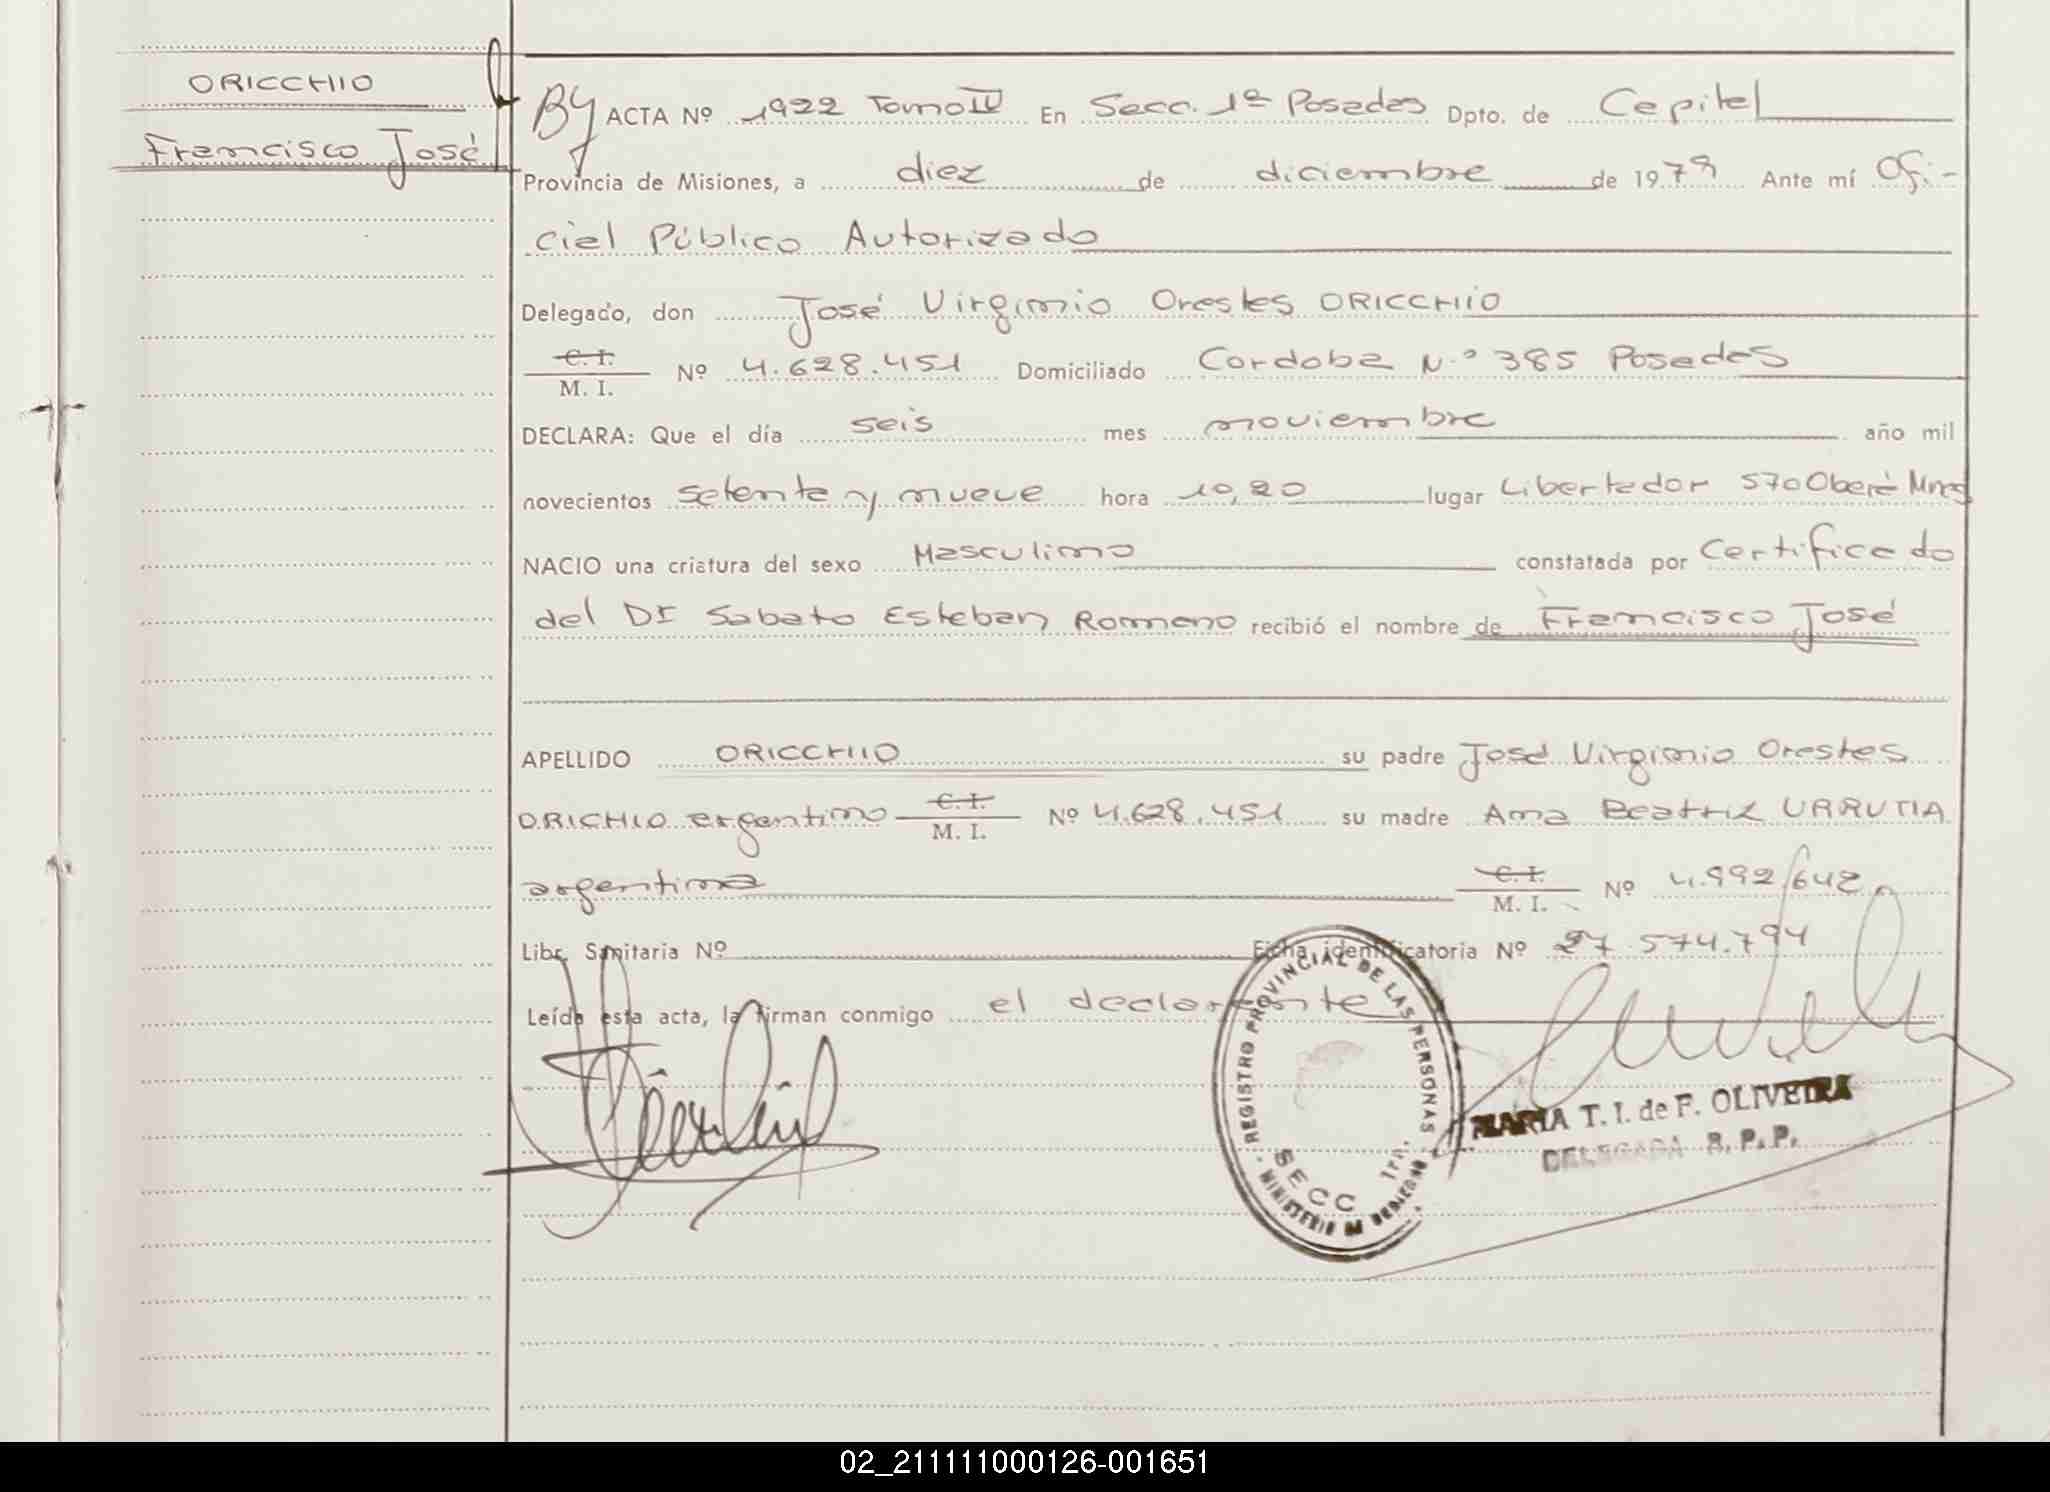 ORICCHIO
Francisco José
By ACTA Nº 1922 Tomo IV En Secc. 1ª Posadas Dpto. de Capital
Provincia de Misiones, a diez de diciembre de 1979 Ante mí Ofi-
cial Público Autorizado
Delegado, don José Virginio Orestes ORICCHIO
C. I.
M. I. Nº 4.628.451 Domiciliado Cordoba N.º 385 Posadas
DECLARA: Que el día seis mes noviembre año mil
novecientos setenta y nueve hora 10,20 lugar Libertador 570 Oberá Mnes
NACIO una criatura del sexo Masculino constatada por Certificado
del Dr Sabato Esteban Romano recibió el nombre de Francisco José
APELLIDO ORICCHIO su padre José Virginio Orestes
ORICHIO argentino C. I. M. I. Nº 4.628.451 su madre Ana Beatriz URRUTIA
argentina C. I. M. I. Nº 4.992.642
Libr. Sanitaria Nº Ficha identificatoria Nº 27.574.794
Leída esta acta, la firman conmigo el declarante
REGISTRO PROVINCIAL DE LAS PERSONAS
SECC 1ra.
MINISTERIO DE GOBIERNO
MARIA T. I. de F. OLIVEIRA
DELEGADA R. P. P.
02_211111000126-001651